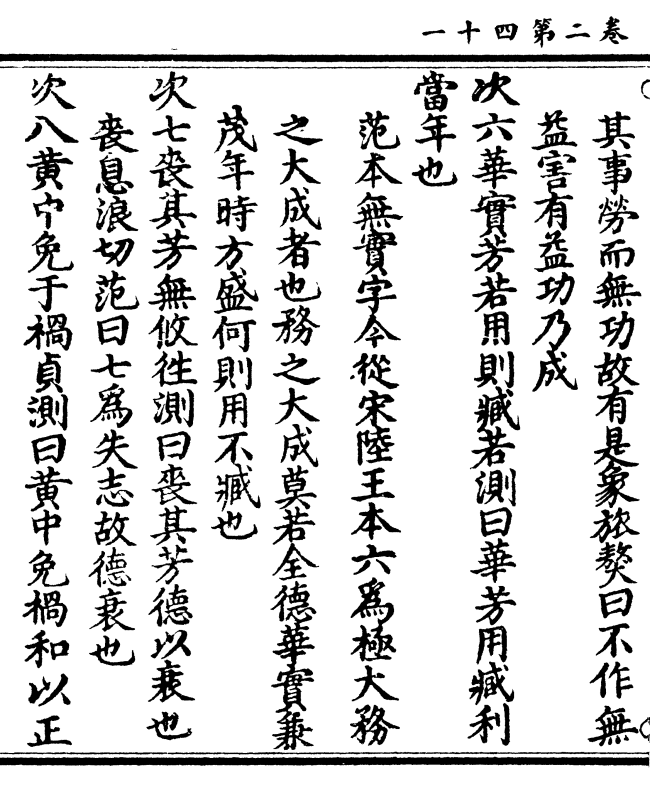 卷二第四十一
其事勞而無功故有是象旅獒曰不作無
益害有益功乃成
次六華實芳若用則臧若測曰華芳用臧利
當年也
范本無實字今從宋陸王本六為極大務
之大成者也務之大成莫若全德華實兼
茂年時方盛何則用不臧也
次七喪其芳無攸往測曰喪其芳德以衰也
喪息浪切范曰七為失志故德衰也
次八黃中免于禍貞測曰黃中免禍和以正